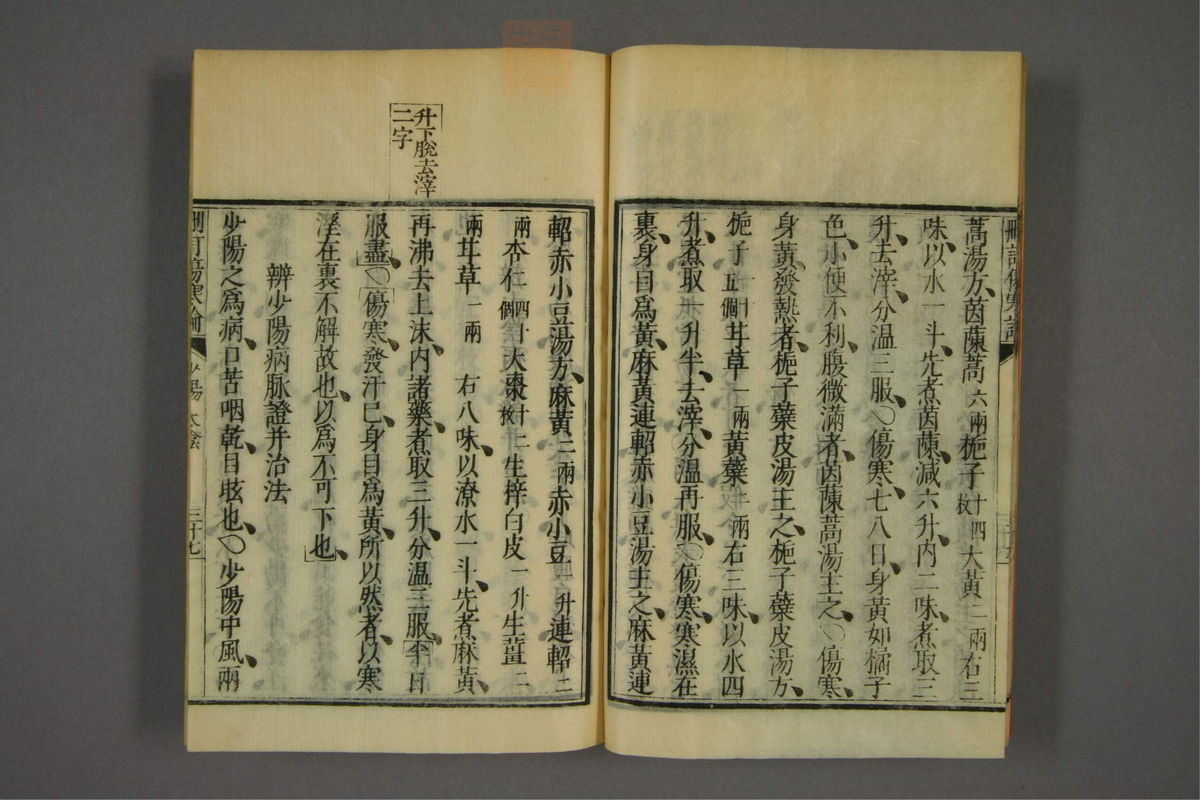 蒿湯方茵蔯蒿六兩梔子十四枚大黃二兩右三
味以水一斗先煮茵蔯減六升内二味煮取三
升去滓分溫三服〇傷寒七八日身黃如橘子
色小便不利腹微滿者茵蔯蒿湯主之〇傷寒
身黃發熱者梔子蘗皮湯主之梔子蘗皮湯方
梔子十五個甘草一兩黃蘗二兩右三味以水四
升煮取一升半去滓分溫再服〇傷寒寒濕在
裏身目爲黃麻黃連軺赤小豆湯主之麻黃連
升下脫去滓
二字
軺赤小豆湯方麻黃二兩赤小豆一升連軺二
兩杏仁四十個大棗十二枚生梓白皮一升生薑二
兩甘草二兩右八味以潦水一斗先煮麻黃
再沸去上沫内諸藥煮取三升分溫三服半日
服盡〇傷寒發汗已身目爲黃所以然者以寒
溼在裏不解故也以爲不可下也
辨少陽病脉證并治法
少陽之爲病口苦咽乾目眩也〇少陽中風兩
少陽 太陰
三十七